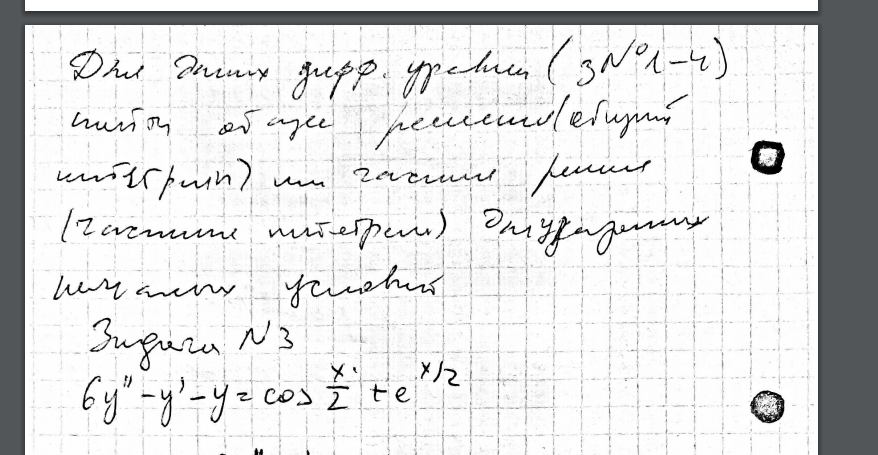 Для данных дифф. уравнен (з№1-4)
найти общее решение (общий
интеграл) или частные решения
(частные интегралы) для указанных
начальных условий
Задача N3
6y'' - y' - y = cos x/2 + e^x/2